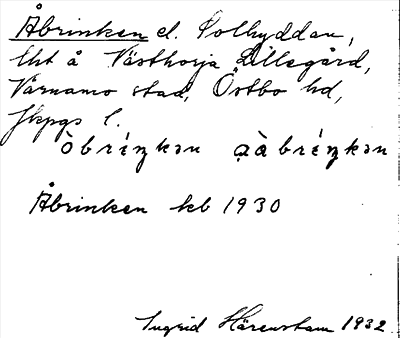 Åbrinken el. Solhyddan,
lht å Västhorja Lillegård,
Värnamo stad, Östbo hd,
Jkpgs l.
òbrίŋkən a̤àbrίŋkən
Åbrinken kb 1930
Ingrid Härenstam 1932